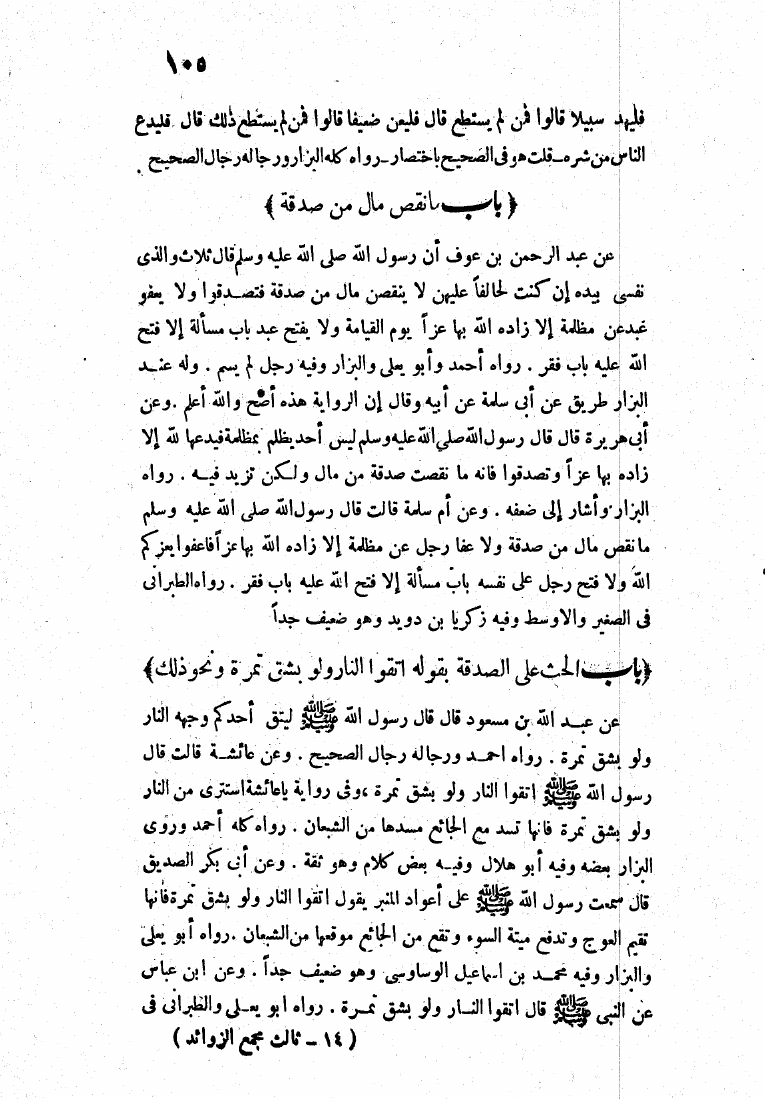 ١٠٥
فليهد سبيلا قالوا فمن لم يستطع قال فليعن ضعيفا قالوا فمن لم يستطع ذلك قال فليدع
الناس من شره ـ قلت هو في الصحيح باختصار ـ رواه كله البزار ورجاله رجال الصحيح .
﴿ باب مانقص مال من صدقة ﴾
عن عبد الرحمن بن عوف أن رسول الله صلى الله عليه وسلم قال ثلاث والذى
نفسى بيده إن كنت لحالفاً عليهن لا ينقصن مال من صدقة فتصدقوا ولا يعفو
عبد عن مظلمة إلا زاده الله بها عزاً يوم القيامة ولا يفتح عبد باب مسألة إلا فتح
الله عليه باب فقر . رواه أحمد وأبو يعلى والبزار وفيه رجل لم يسم . وله عند
البزار طريق عن أبى سلمة عن أبيه وقال إن الرواية هذه أصح والله أعلم . وعن
أبى هريرة قال قال رسول الله صلى الله عليه وسلم ليس أحد يظلم بمظلمة فيدعها لله إلا
زاده بها عزاً وتصدقوا فانه ما نقصت صدقة من مال ولكن تزيد فيه . رواه
البزار وأشار إلى ضعفه . وعن أم سلمة قالت قال رسول الله صلى الله عليه وسلم
مانقص مال من صدقة ولا عفا رجل عن مظلمة إلا زاده الله بها عزاً فاعفوا يعزكم
الله ولا فتح رجل على نفسه باب مسألة إلا فتح الله عليه باب فقر . رواه الطبرانى
فى الصغير والاوسط وفيه زكريا بن دويد وهو ضعيف جداً
﴿ باب الحث على الصدقة بقوله اتقوا النار ولو بشق تمرة ونحو ذلك ﴾
عن عبد الله بن مسعود قال قال رسول الله ﷺ ليتق أحدكم وجهه النار
ولو بشق تمرة . رواه احمد ورجاله رجال الصحيح . وعن عائشة قالت قال
رسول الله ﷺ اتقوا النار ولو بشق تمرة ، وفى رواية ياعائشة استترى من النار
ولو بشق تمرة فانها تسد مع الجائع مسدها من الشبعان . رواه كله أحمد وروى
البزار بعضه وفيه أبو هلال وفيه بعض كلام وهو ثقة . وعن أبى بكر الصديق
قال سمعت رسول الله ﷺ على أعواد المنبر يقول اتقوا النار ولو بشق تمرة فانها
تقيم العوج وتدفع ميتة السوء وتقع من الجائع موقعها من الشبعان . رواه أبو يعلى
والبزار وفيه محمد بن اسماعيل الوساوسى وهو ضعيف جداً . وعن ابن عباس
عن النبى ﷺ قال اتقوا النار ولو بشق تمرة . رواه ابو يعلى والطبرانى فى
( ١٤ ـ ثالث مجمع الزوائد )